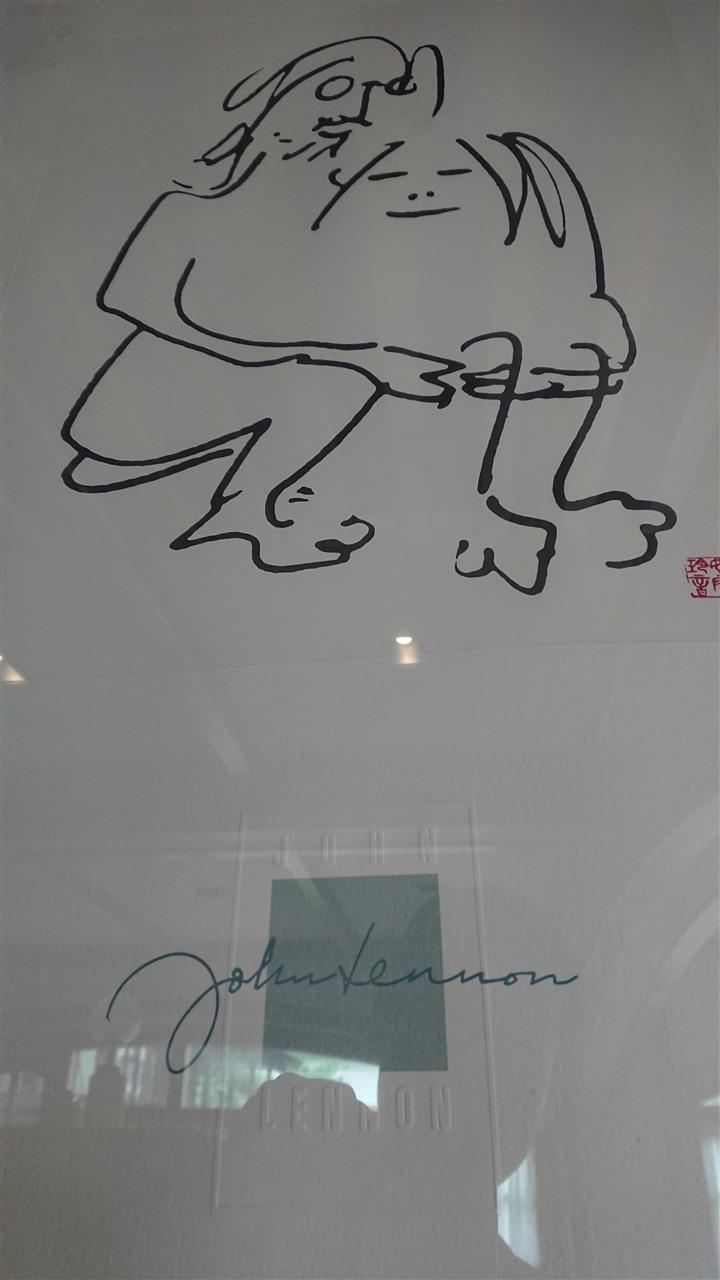 JOHN
John Lennon
LENNON